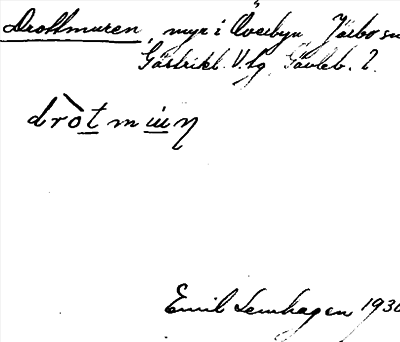 Drottmuren, myr i Överbyn Järbo sn
Gästrikl. V. tg Gävleb. l.
dròtmuu̇ŋ
Emil Lenhagen 1930